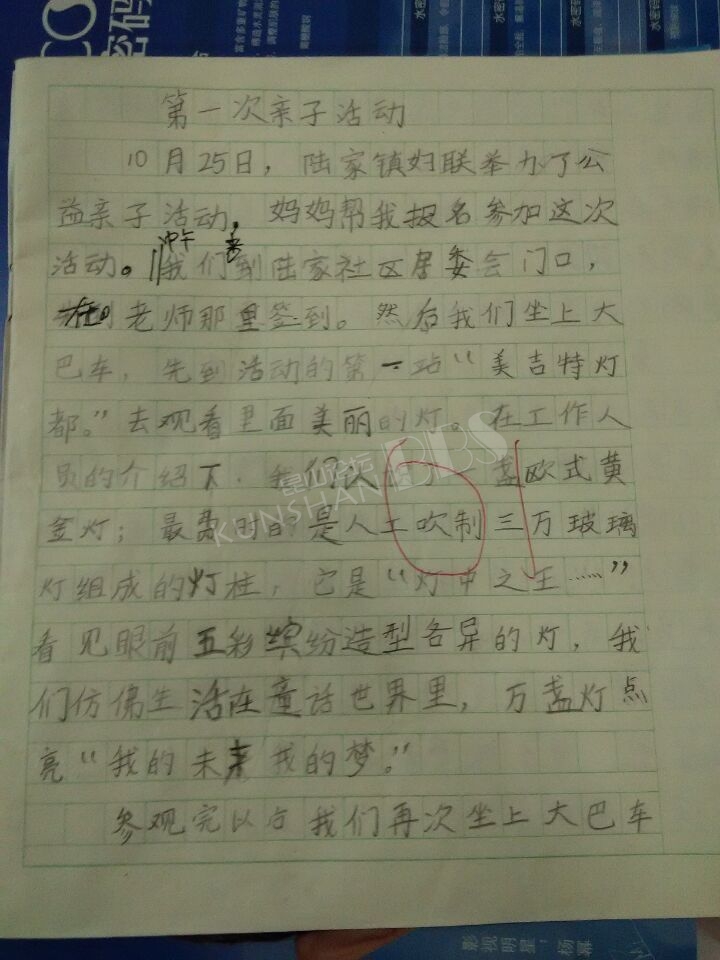 第一次亲子活动
10月25日，陆家镇妇联举办了公
益亲子活动，妈妈帮我报名参加这次
活动。中午我们来到陆家社区居委会门口，
在老师那里签到。然后我们坐上大
巴车，先到活动的第一站“美吉特灯
都。”去观看里面美丽的灯。在工作人
员的介绍下，我们认 盏欧式黄
金灯；最 时的是人工吹制三万玻璃
灯组成的灯柱，它是“灯中之王……”
看见眼前五彩缤纷造型各异的灯，我
们仿佛生活在童话世界里，万盏灯点
亮“我的未来我的梦。”
参观完以后我们再次坐上大巴车
昆山论坛 BBS
KUNSHAN
水密码
密码
影视明星：杨幂